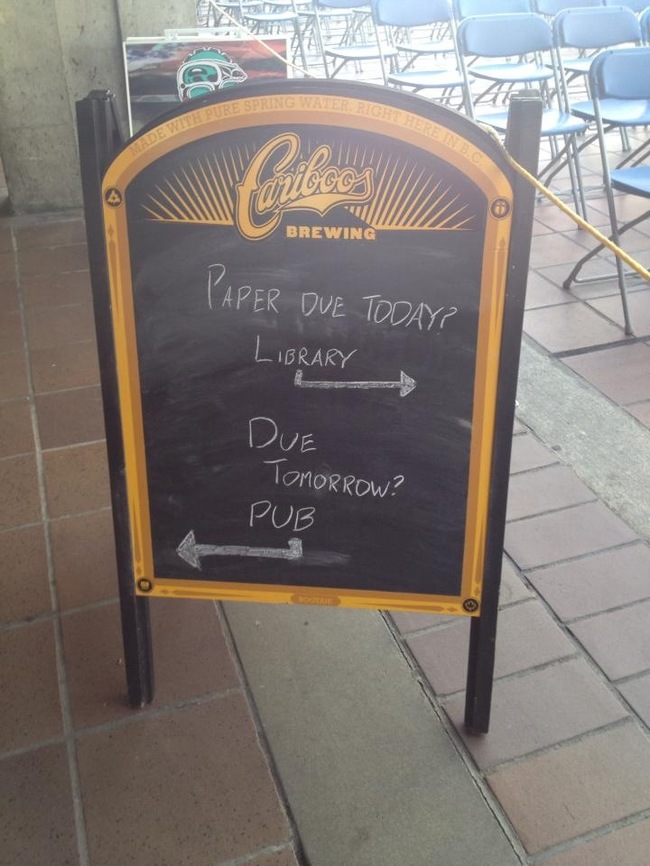 MADE WITH PURE SPRING WATER. RIGHT HERE IN B.C.
Cariboo
BREWING
PAPER DUE TODAY?
LIBRARY
DUE
TOMORROW?
PUB